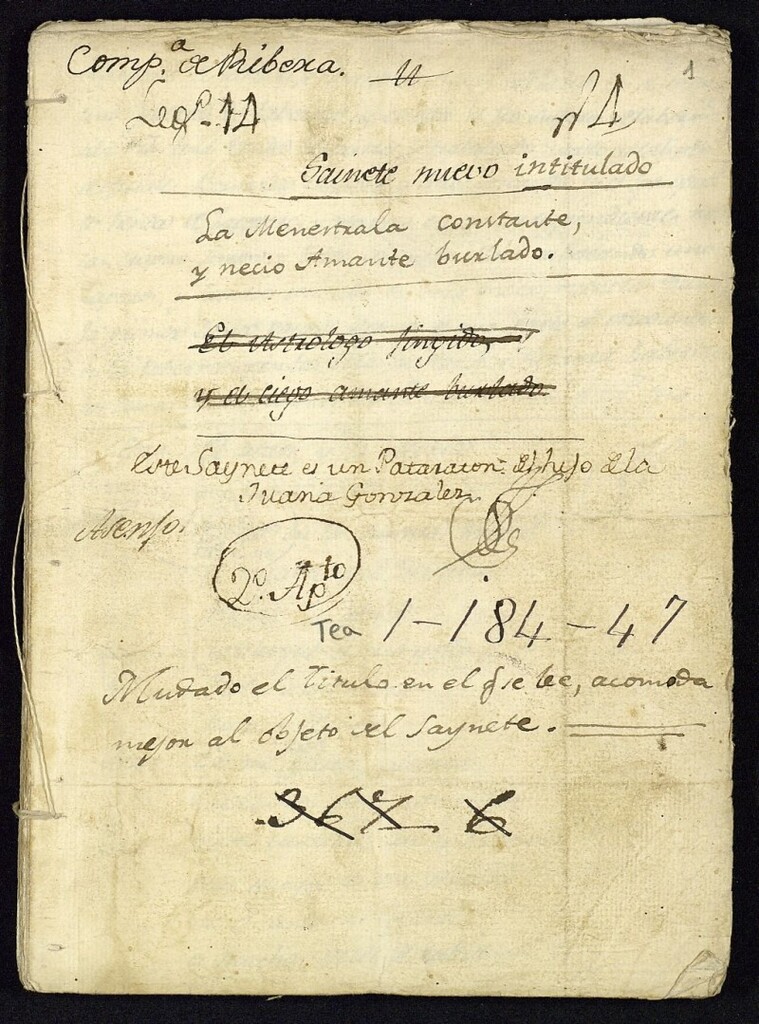 Comp.ª de Ribera.
1
Leg.º 14
nº 4
Sainete nuevo intitulado
La Menestrala constante,
y necio Amante burlado.
El Astrologo fingido,
y el ciego amante burlado.
Este Saynete es un Pataraton del hijo de la
Juana Gonzalez
Asenjo.
2.º Ap.to
Tea 1-184-47
Mudado el titulo en el q.e se lee, acomoda
mejor al objeto del Saynete.
367 6